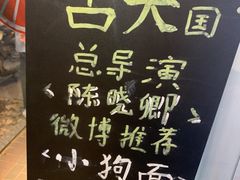 舌尖国
总导演
<陈晓卿>
微博推荐
<小狗面